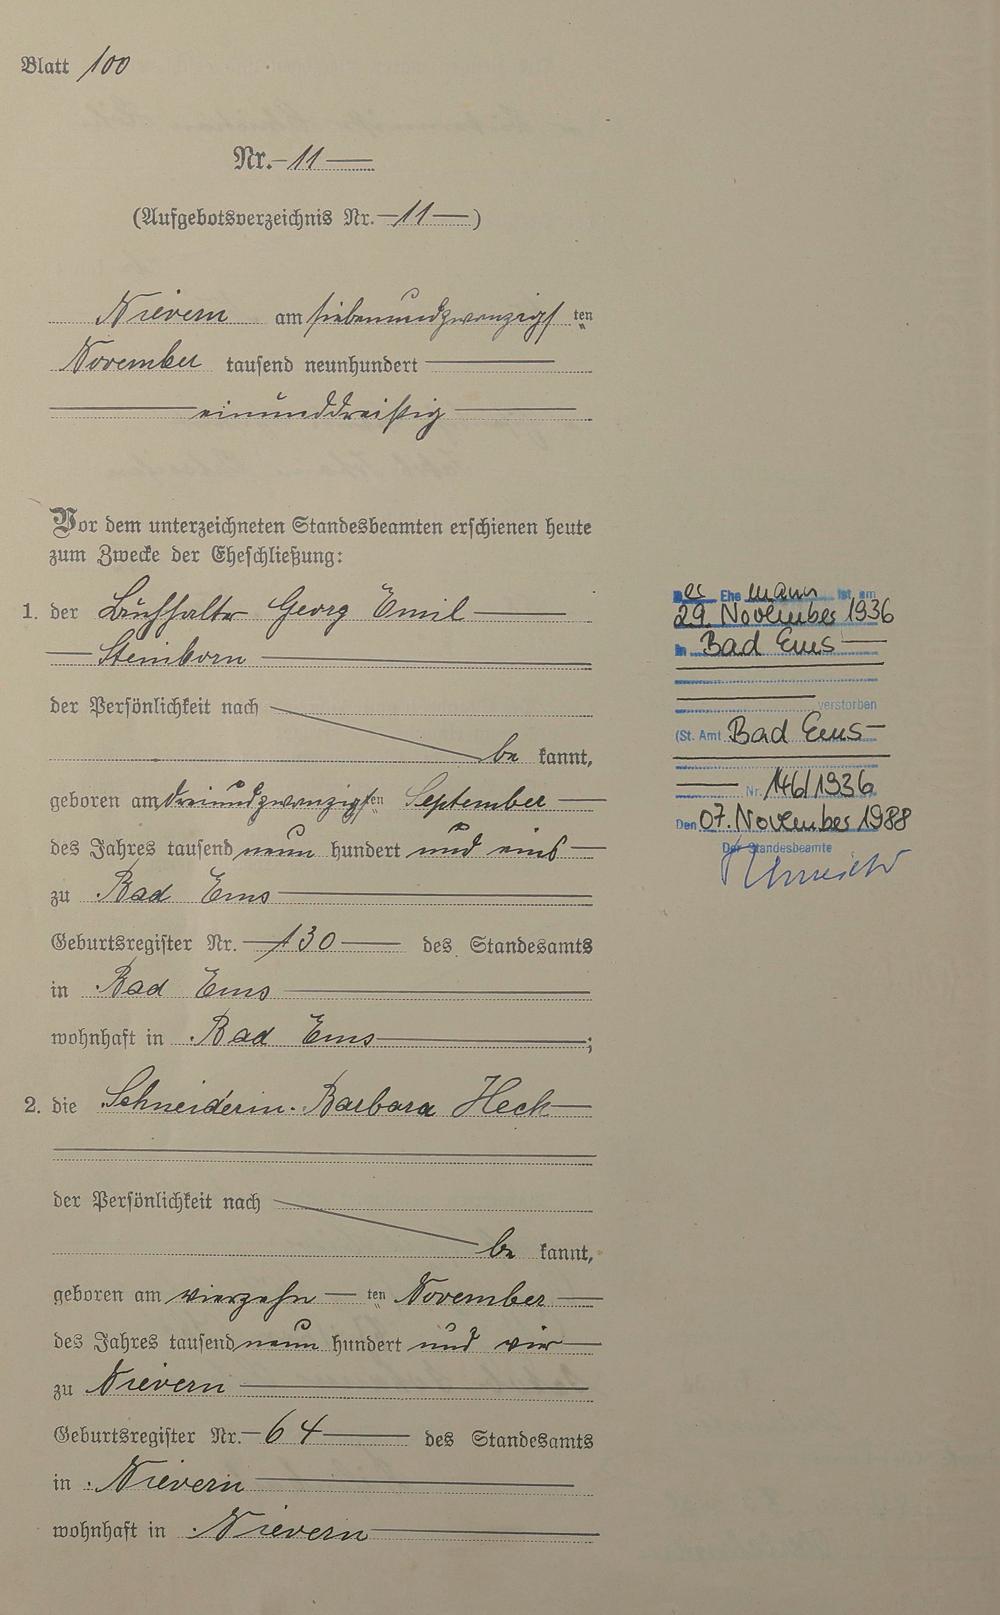 Blatt 100
Nr. 11
(Aufgebotsverzeichnis Nr. 11)
Nievern am siebenundzwanzigsten
November tausend neunhundert
einunddreißig
Vor dem unterzeichneten Standesbeamten erschienen heute
zum Zwecke der Eheschließung:
1. der Buchhalter Georg Emil
Steinborn
der Persönlichkeit nach
be kannt,
geboren am dreiundzwanzigsten September
des Jahres tausend neun hundert und eins
zu Bad Ems
Geburtsregister Nr. 130 des Standesamts
in Bad Ems
wohnhaft in Bad Ems;
2. die Schneiderin Barbara Heck
der Persönlichkeit nach
be kannt,
geboren am vierzehnten November
des Jahres tausend neun hundert und vier
zu Nievern
Geburtsregister Nr. 64 des Standesamts
in Nievern
wohnhaft in Nievern
Der Ehemann ist am
29. November 1936
in Bad Ems
verstorben
(St. Amt Bad Ems
Nr. 146/1936
Den 07. November 1988
Der Standesbeamte